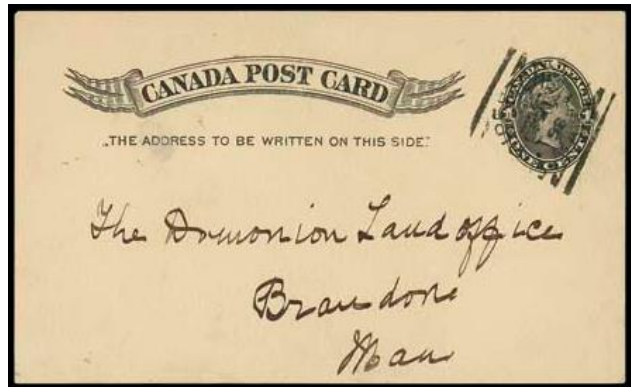 CANADA POST CARD
"THE ADDRESS TO BE WRITTEN ON THIS SIDE."
The Dominion Land office
Brandon
Man